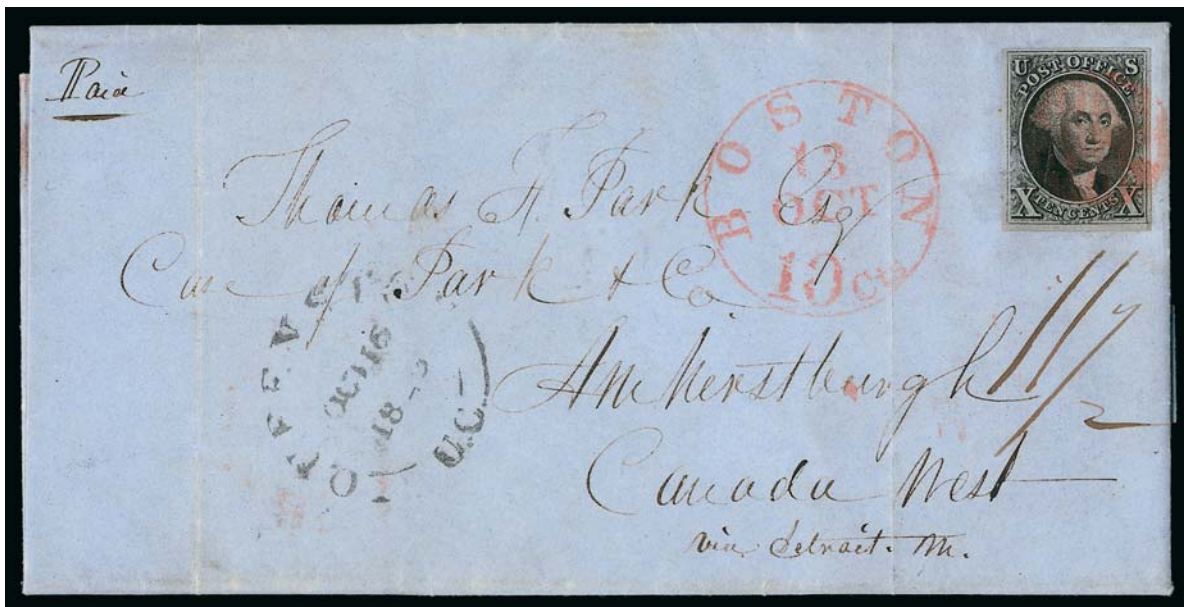 Paid
U S
POST OFFICE
X TEN CENTS X
BOSTON
13
OCT
10 Cts
Thomas F. Park Esq
Care of Park & Co
Amherstburgh
11 1/2
Canada West
via Detroit. M.
QUEENSTON
OCT 16
18
U.C.